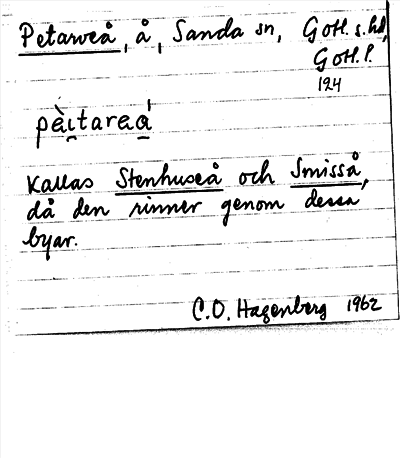 Petarveå, å, Sanda sn, Gotl. s. hd,
Gotl. l.
124
pèi̯tarea̱ˈ
Kallas Stenhuseå och Smisså,
då den rinner genom dessa
byar.
C.O. Hagenberg 1962